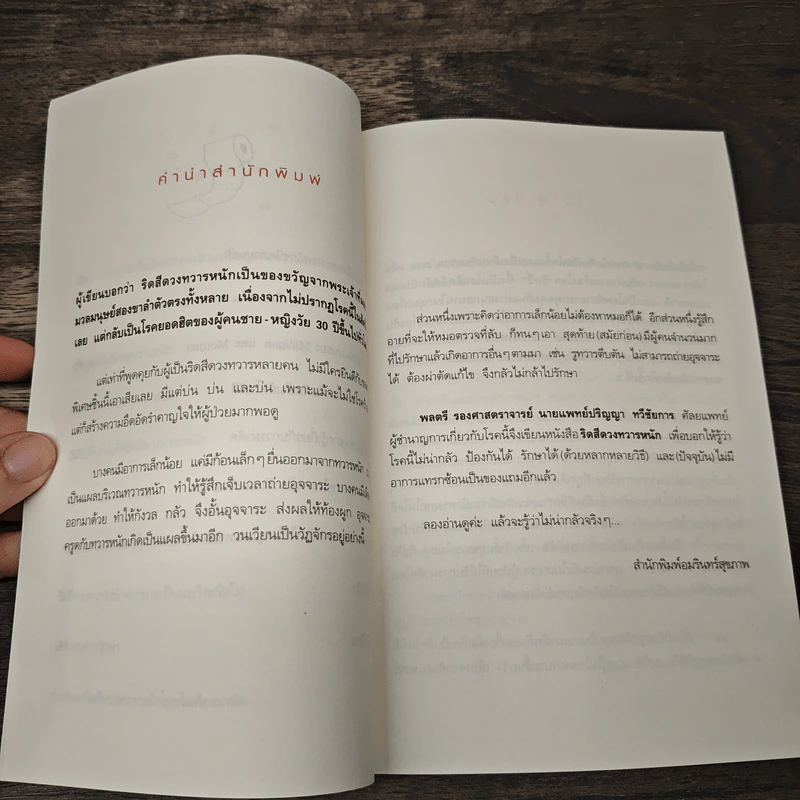 คำนำสำนักพิมพ์
ผู้เขียนบอกว่า ริดสีดวงทวารหนักเป็นของขวัญจากพระเจ้าที่
มวลมนุษย์สองขาลำตัวตรงทั้งหลาย เนื่องจากไม่ปรากฏโรคนี้ใน
เลย แต่กลับเป็นโรคยอดฮิตของผู้คนชาย - หญิงวัย 30 ปีขึ้นไป
แต่เท่าที่พูดคุยกับผู้เป็นริดสีดวงทวารหลายคน ไม่มีใครยินดีกับ
พิเศษชิ้นนี้เอาเสียเลย มีแต่บ่น บ่น และบ่น เพราะแม้จะไม่ใช่โรค
แต่ก็สร้างความอึดอัดรำคาญใจให้ผู้ป่วยมากพอดู
บางคนมีอาการเล็กน้อย แค่มีก้อนเล็กๆ ยื่นออกมาจากทวารหนัก
เป็นแผลบริเวณทวารหนัก ทำให้รู้สึกเจ็บเวลาถ่ายอุจจาระ บางคนมี
ออกมาด้วย ทำให้กังวล กลัว จึงอั้นอุจจาระ ส่งผลให้ท้องผูก
ครูดกับทวารหนักเกิดเป็นแผลขึ้นมาอีก วนเวียนเป็นวัฏจักรอยู่อย่างนี้
ส่วนหนึ่งเพราะคิดว่าอาการเล็กน้อยไม่ต้องหาหมอก็ได้ อีกส่วนหนึ่งรู้สึก
อายที่จะให้หมอตรวจที่ลับ ก็ทนๆ เอา สุดท้าย (สมัยก่อน) มีผู้คนจำนวนมาก
ที่ไปรักษาแล้วเกิดอาการอื่นๆ ตามมา เช่น รูทวารตีบตัน ไม่สามารถถ่ายอุจจาระ
ได้ ต้องผ่าตัดแก้ไข จึงกลัวไม่กล้าไปรักษา
พลตรี รองศาสตราจารย์ นายแพทย์ปริญญา ทวีชัยการ ศัลยแพทย์
ผู้ชำนาญการเกี่ยวกับโรคนี้จึงเขียนหนังสือ ริดสีดวงทวารหนัก เพื่อบอกให้รู้ว่า
โรคนี้ไม่น่ากลัว ป้องกันได้ รักษาได้ (ด้วยหลากหลายวิธี) และ (ปัจจุบัน) ไม่มี
อาการแทรกซ้อนเป็นของแถมอีกแล้ว
ลองอ่านดูค่ะ แล้วจะรู้ว่าไม่น่ากลัวจริงๆ...
สำนักพิมพ์อมรินทร์สุขภาพ